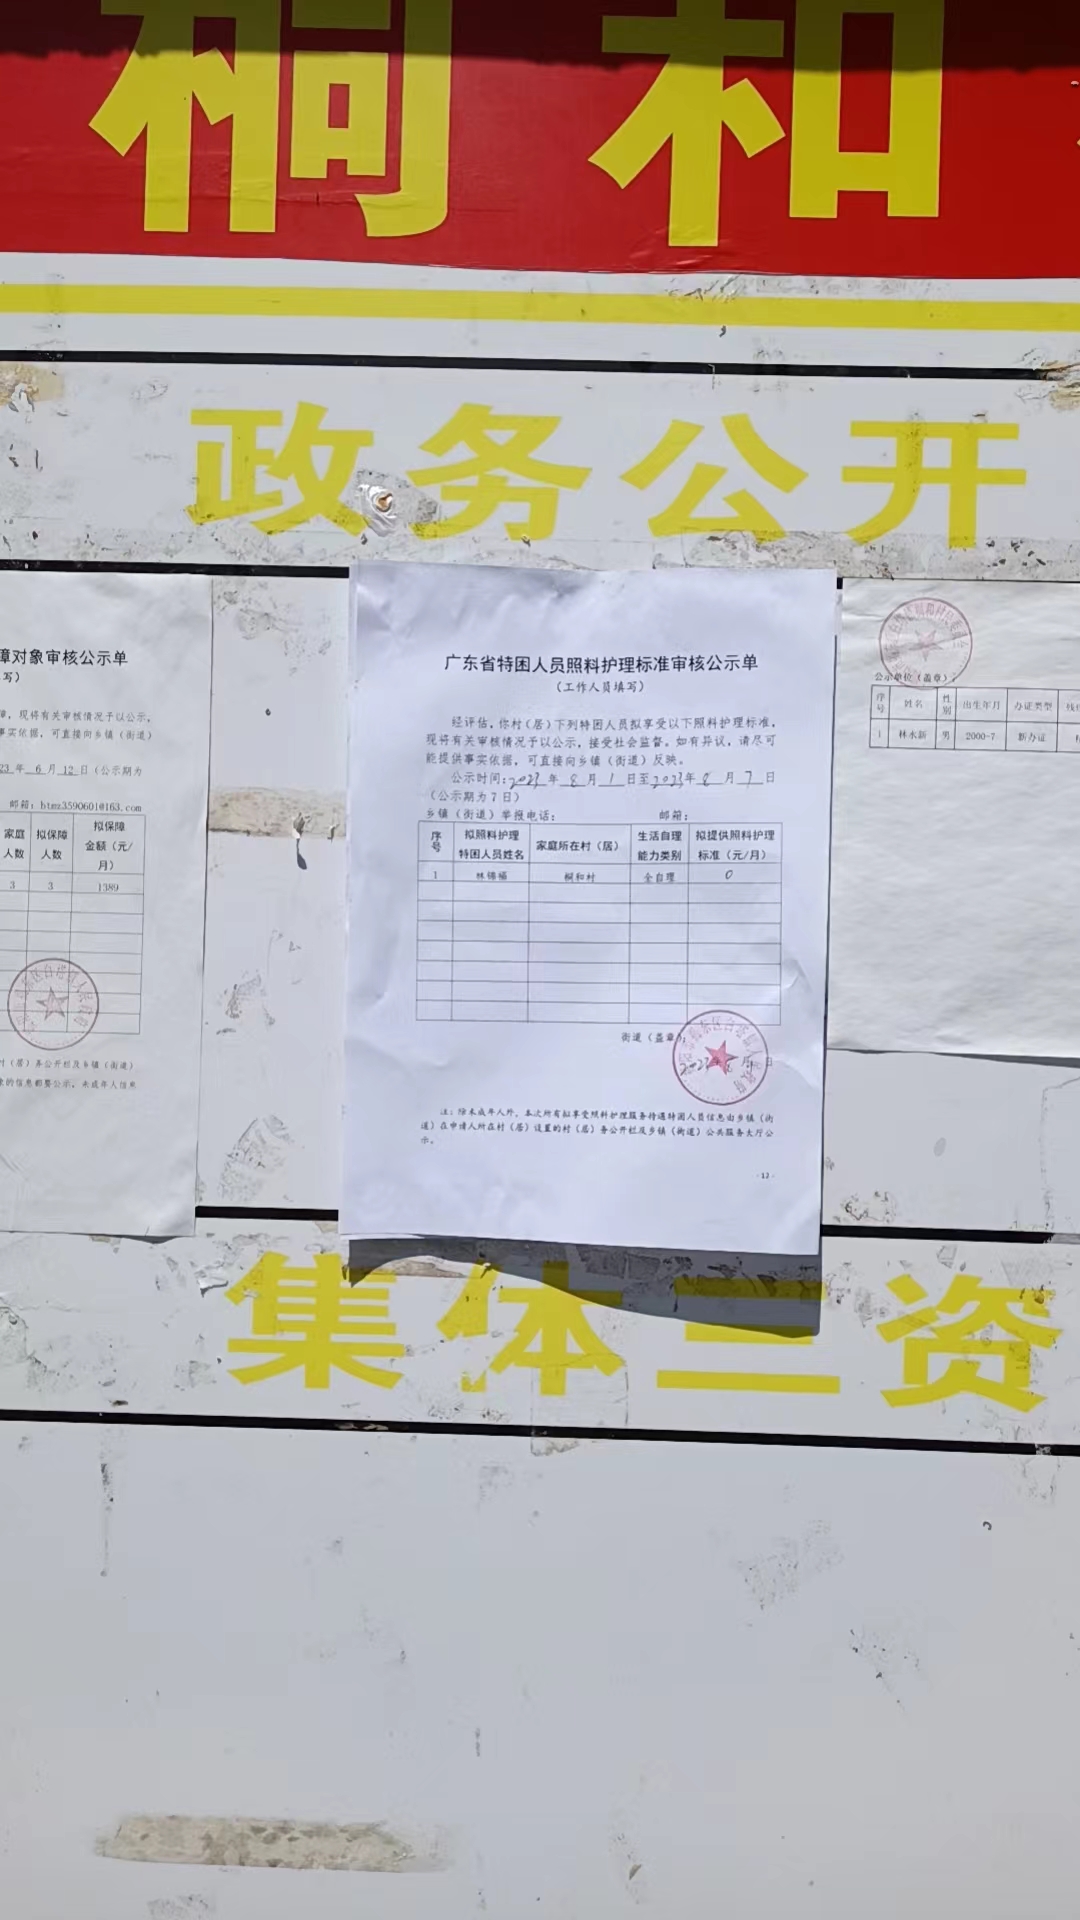 桐和
政务公开
障对象审核公示单
写）
障，现将有关审核情况予以公示，
事实依据，可直接向乡镇（街道）
23年 6 月 12 日（公示期为
邮箱：btmz3590601@163.com
家庭人数 拟保障人数 拟保障金额（元/月）
3 3 1389
村（居）务公开栏及乡镇（街道）
广东省特困人员照料护理标准审核公示单
（工作人员填写）
经评估，你村（居）下列特困人员拟享受以下照料护理标准，
现将有关审核情况予以公示，接受社会监督。如有异议，请尽可
能提供事实依据，可直接向乡镇（街道）反映。
公示时间：2023年 8 月 1 日至2023年 8 月 7 日
（公示期为 7 日）
乡镇（街道）举报电话： 邮箱：
序号 拟照料护理特困人员姓名 家庭所在村（居） 生活自理能力类别 拟提供照料护理标准（元/月）
1 林锦福 桐和村 全自理 0
街道（盖章）：
2023年 8 月 1 日
注：除未成年人外，本次所有拟享受照料护理服务待遇特困人员信息由乡镇（街
道）在申请人所在村（居）设置的村（居）务公开栏及乡镇（街道）公共服务大厅公
示。
- 12 -
公示单位（盖章）：
序号 姓名 性别 出生年月 办证类型
1 林永新 男 2000-7 新办证
集体三资